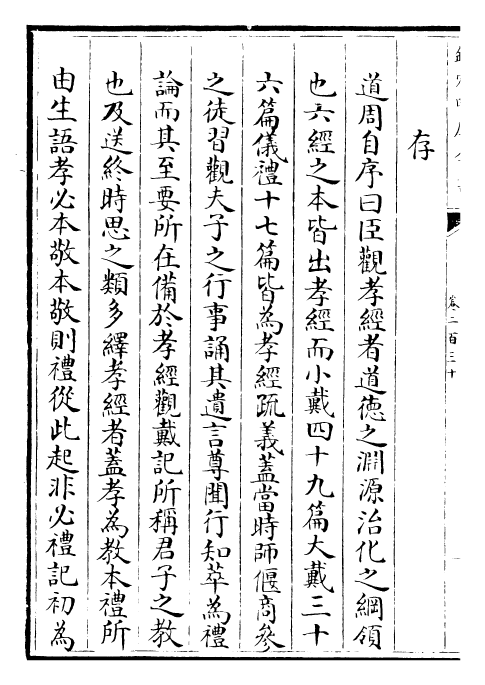 卷二百三十
存
道周自序曰臣觀孝經者道德之淵源治化之綱領
也六經之本皆出孝經而小戴四十九篇大戴三十
六篇儀禮十七篇皆為孝經疏義蓋當時師偃商參
之徒習觀夫子之行事誦其遺言尊聞行知萃為禮
論而其至要所在備於孝經觀戴記所稱君子之教
也及送終時思之類多繹孝經者蓋孝為教本禮所
由生語孝必本敬本敬則禮從此起非必禮記初為